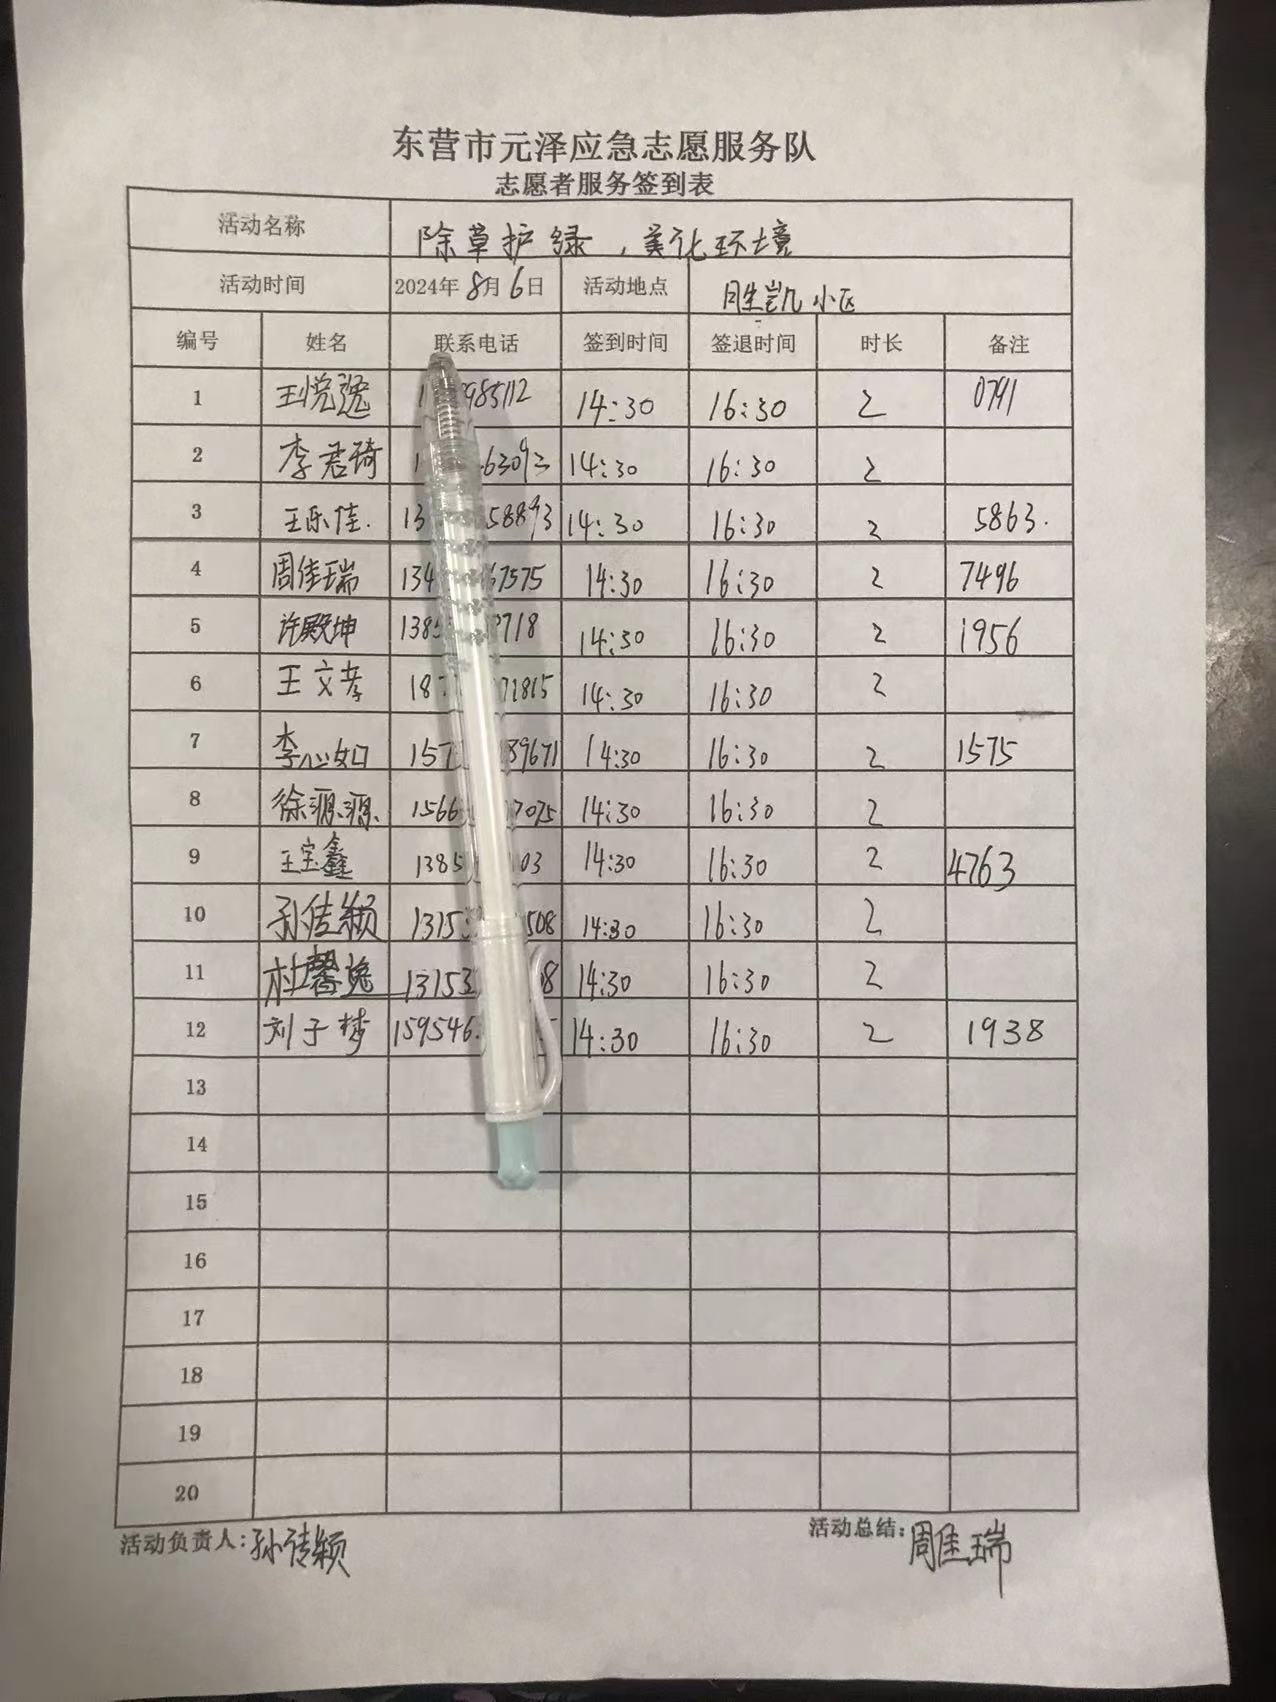 东营市元泽应急志愿服务队
志愿者服务签到表
活动名称 除草护绿，美化环境
活动时间 2024年8月6日 活动地点 胜凯小区
编号 姓名 联系电话 签到时间 签退时间 时长 备注
1 王悦逸 985112 14:30 16:30 2 0791
2 李君琦 63093 14:30 16:30 2
3 王乐佳. 13 58893 14:30 16:30 2 5863.
4 周佳瑞 134 67575 14:30 16:30 2 7496
5 许殿坤 1385 718 14:30 16:30 2 1956
6 王文孝 187 71815 14:30 16:30 2
7 李心如 157 39671 14:30 16:30 2 1575
8 徐源源. 1566 7075 14:30 16:30 2
9 王宝鑫 1385 03 14:30 16:30 2 4763
10 孙佳颖 1315 508 14:30 16:30 2
11 杜馨逸 13153 08 14:30 16:30 2
12 刘子梦 159546 14:30 16:30 2 1938
13
14
15
16
17
18
19
20
活动负责人:孙佳颖 活动总结:周佳瑞